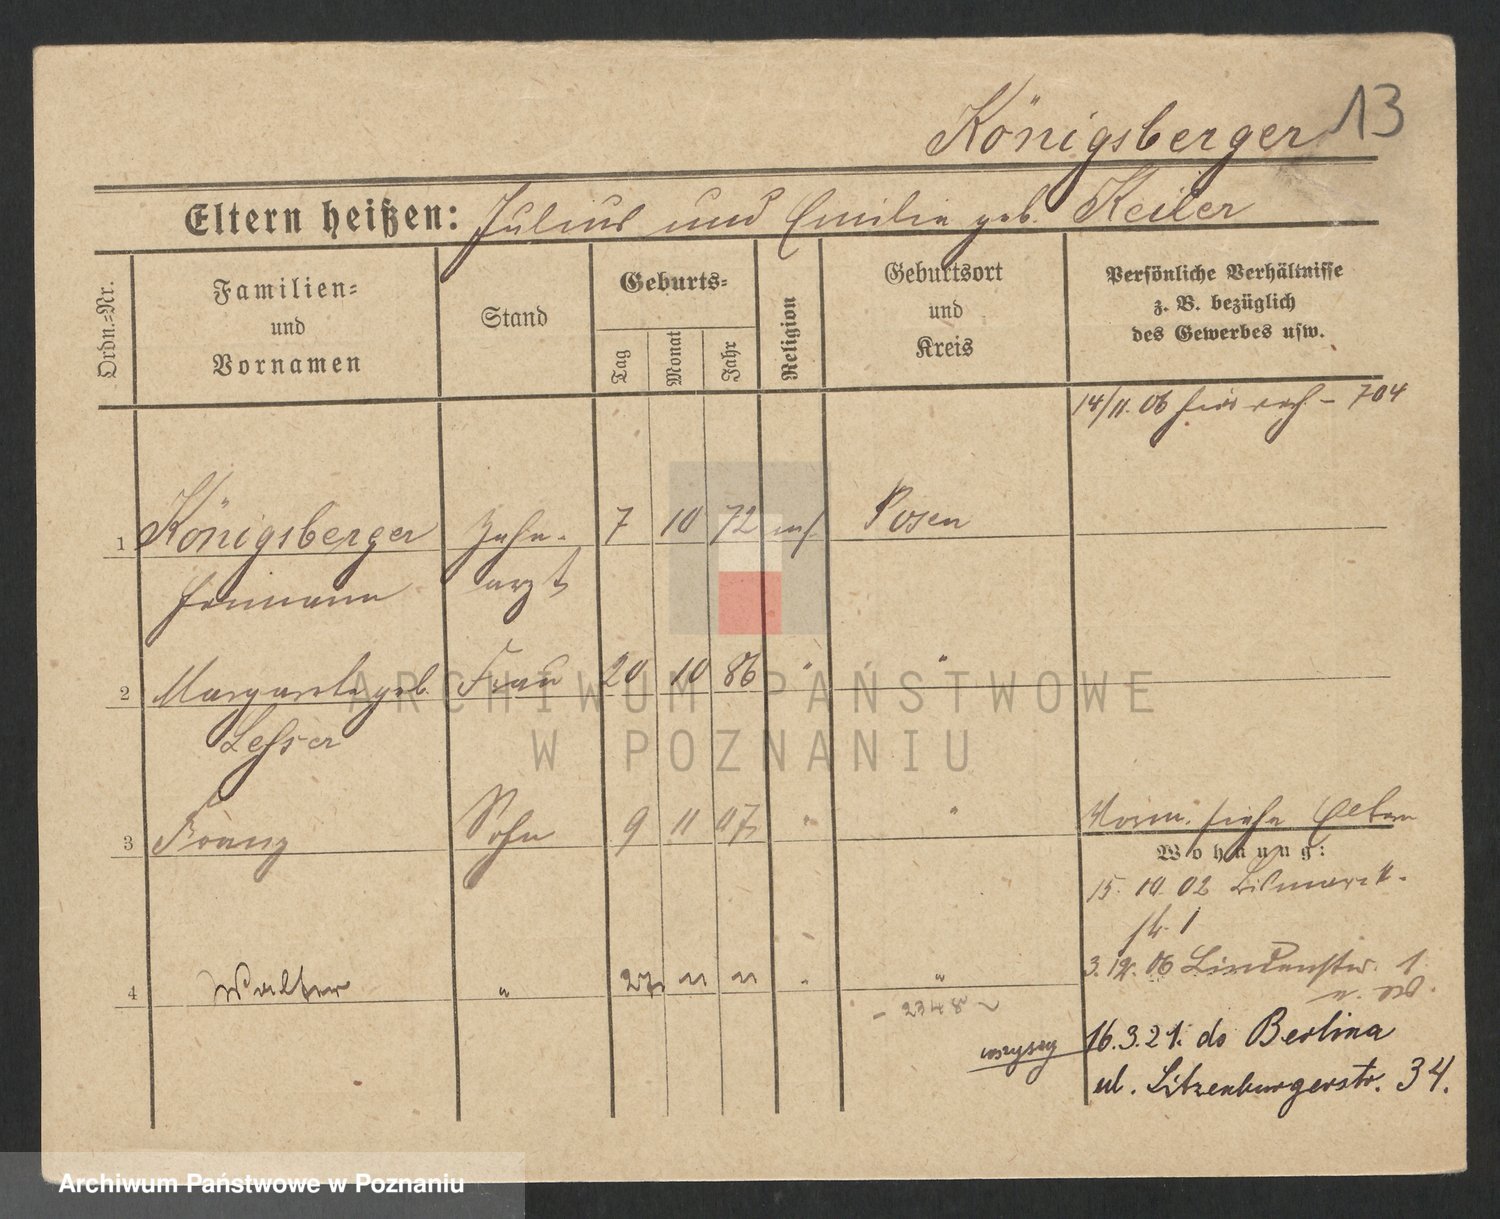 13
Königsberger
Eltern heißen: Julius und Emilie geb. Keiler
Ordn.-Nr.
Familien-
und
Vornamen
Stand
Geburts-
Tag
Monat
Jahr
Religion
Geburtsort
und
Kreis
Persönliche Verhältnisse
z. B. bezüglich
des Gewerbes usw.
14/11. 06 - 704
1 Königsberger Zahn- 7 10 72 Posen
Hermann arzt
2 Margarete geb. Frau 20 10 86 " "
Lesser
3 Franz Sohn 9 11 07 " "
Vorm. siehe Eltern
Wohnung:
15. 10. 02 Bismarck-
str. 1
4 Walter " 27 " "
3. 12. 06 Lindenstr. 1
- 2348 -
wszyscy 16.3.21. do Berlina
ul. Litzenburgerstr. 34.
ARCHIWUM PAŃSTWOWE
W POZNANIU
Archiwum Państwowe w Poznaniu